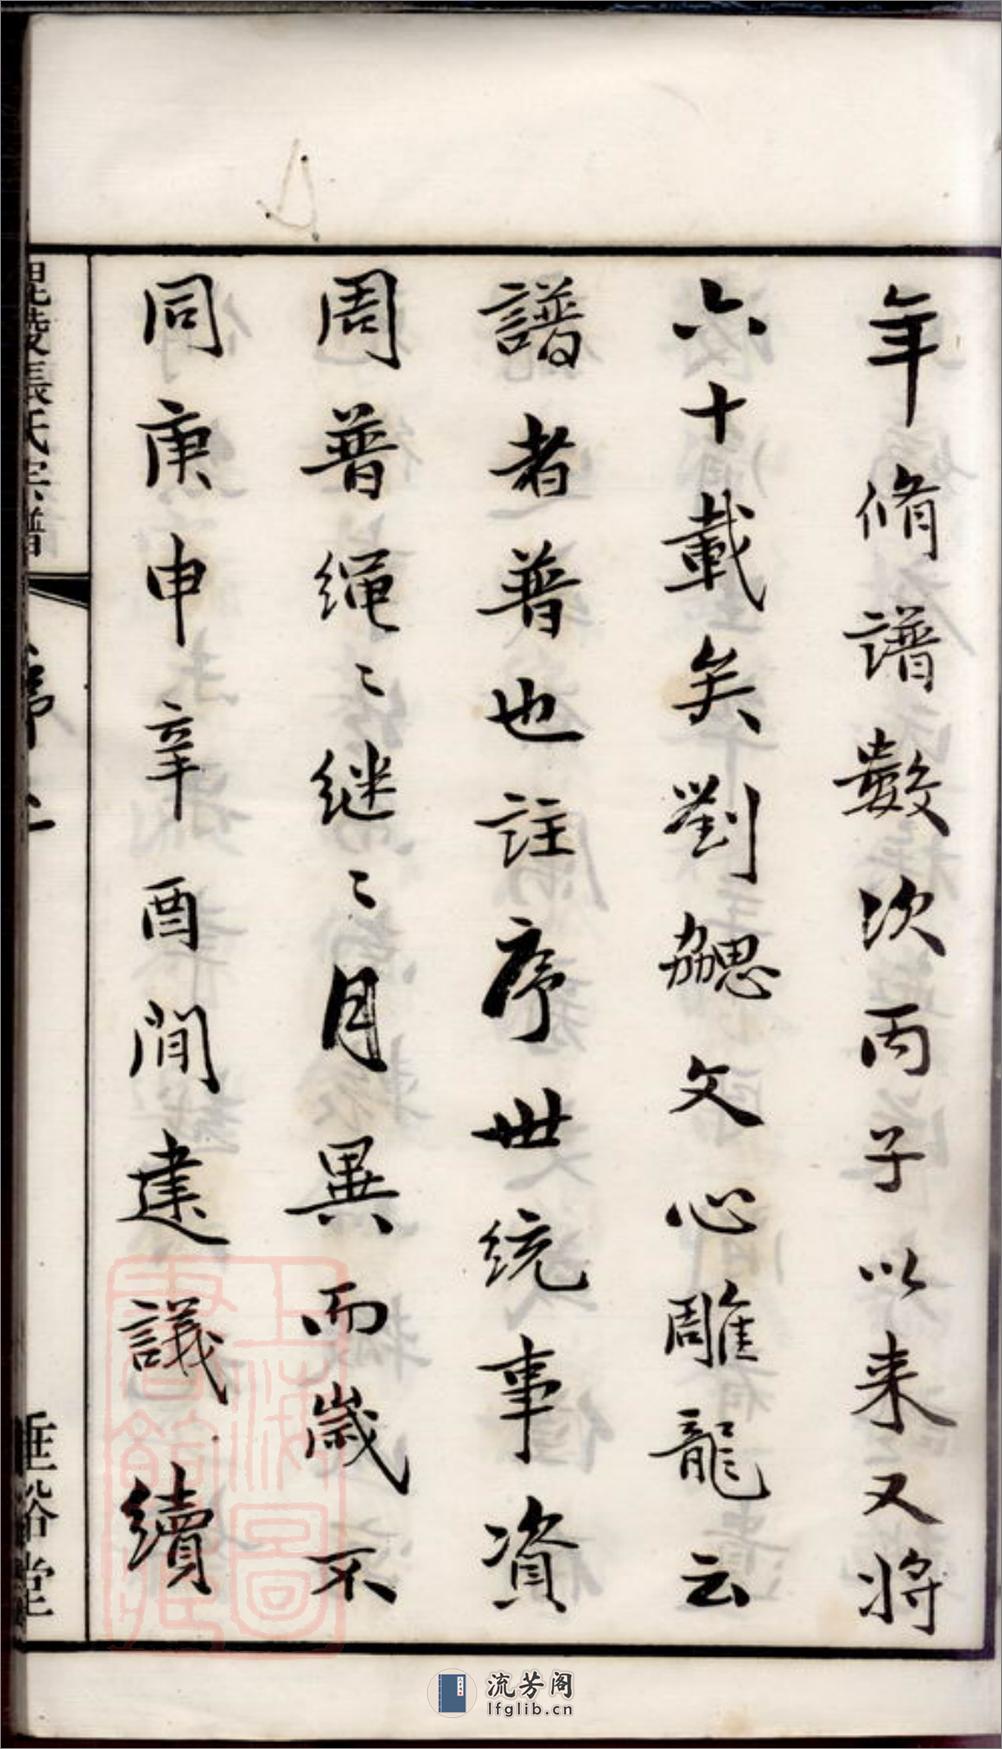 年脩譜數次丙子以来又将
六十載矣劉勰文心雕龍云
譜者普也註序世統事資
周普绳〻继〻月異而歲不
同庚申辛酉間建議續
毘陵張氏宗譜
序
垂裕堂
上海圖書館藏
流芳阁
lfglib.cn